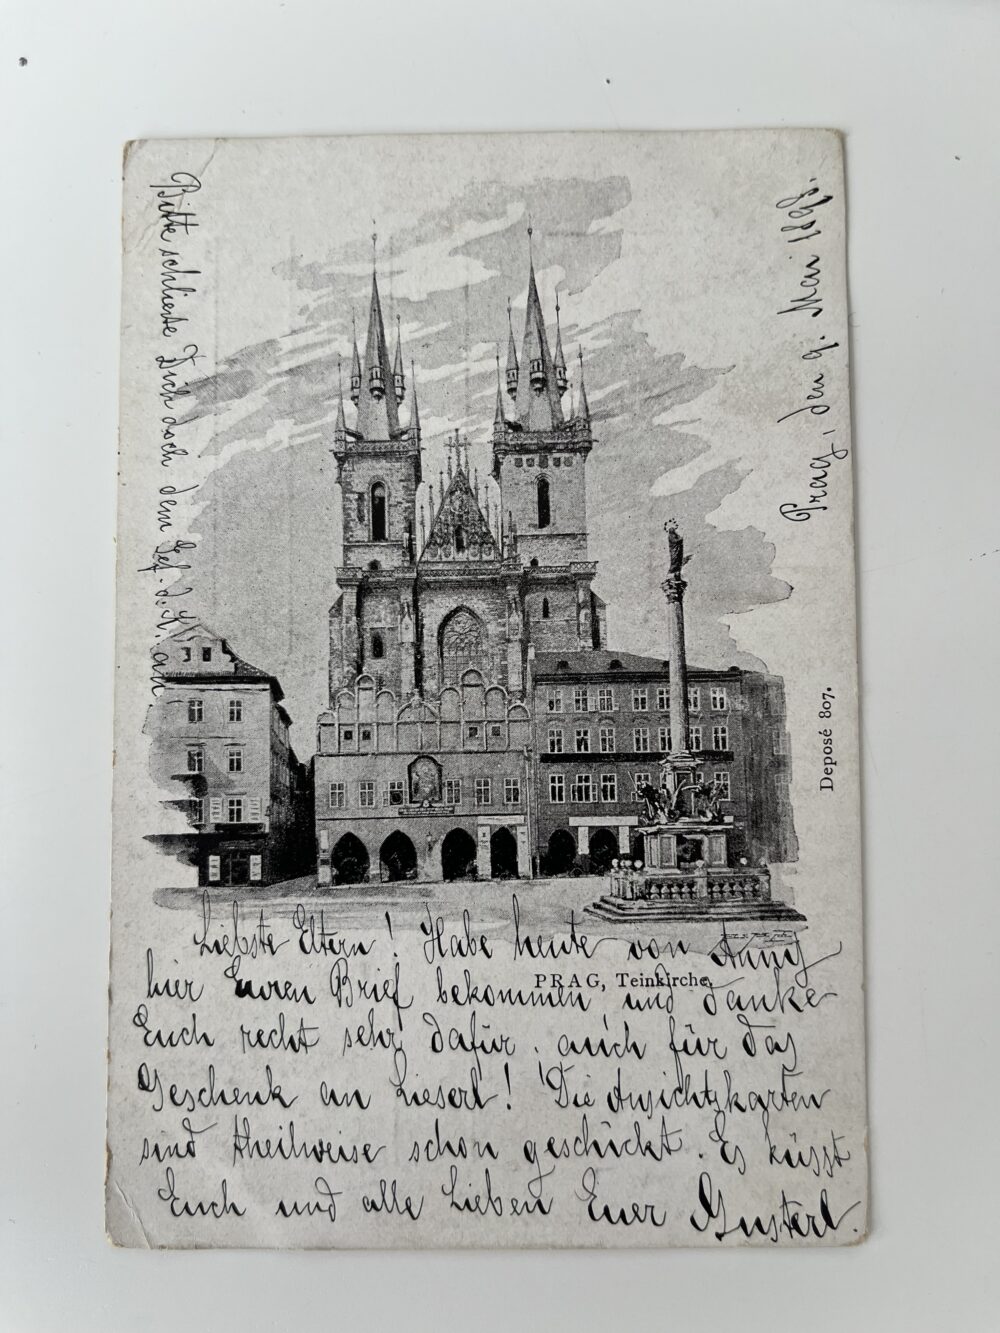 Prag, den 9. Mai 1898.
Bitte schließe Dich doch dem Gef. d. K. an
Deposé 807.
PRAG, Teinkirche.
Liebste Eltern! Habe heute von Anny
hier Euren Brief bekommen und danke
Euch recht sehr dafür, auch für das
Geschenk an Lieserl! Die Ansichtskarten
sind theilweise schon geschickt. Es küsst
Euch und alle Lieben Euer Gusterl.